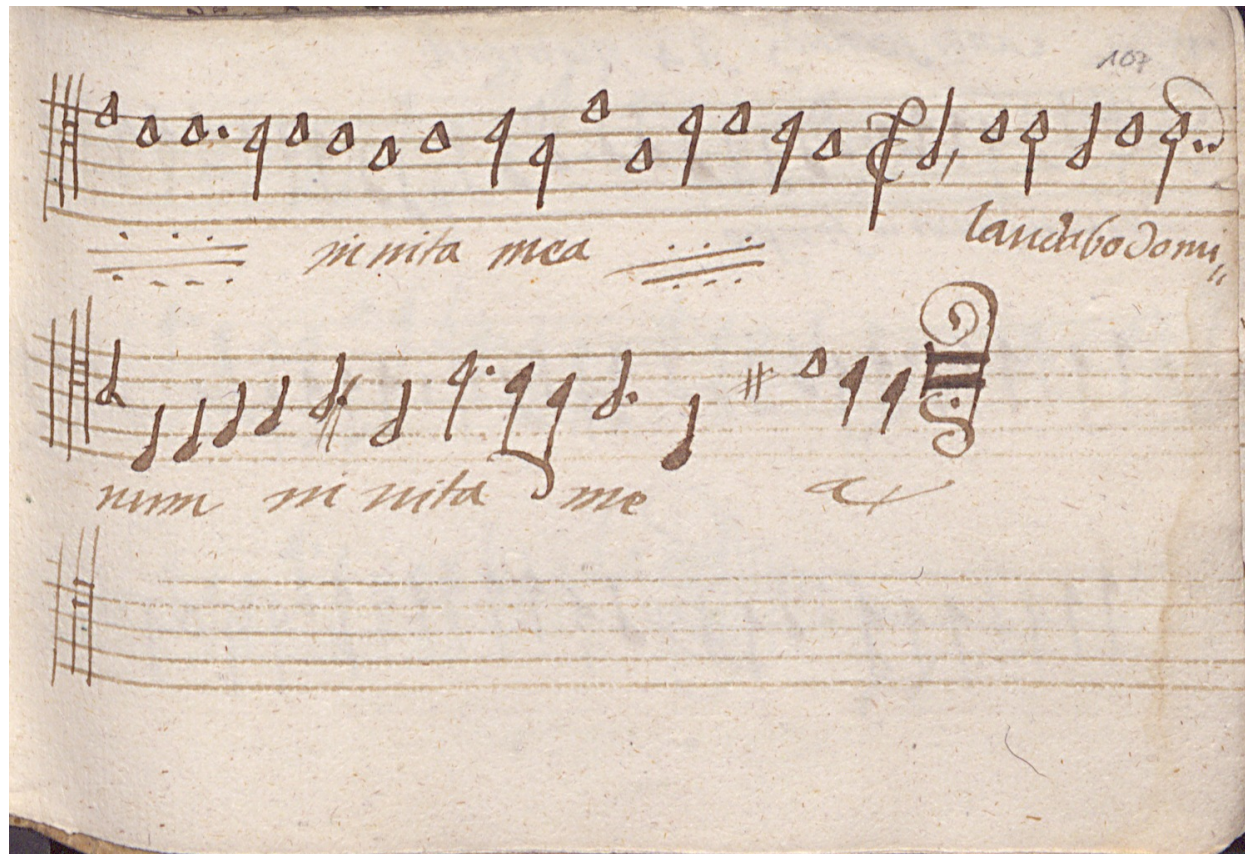 107
in vita mea laudabo domi„
num in vita me a